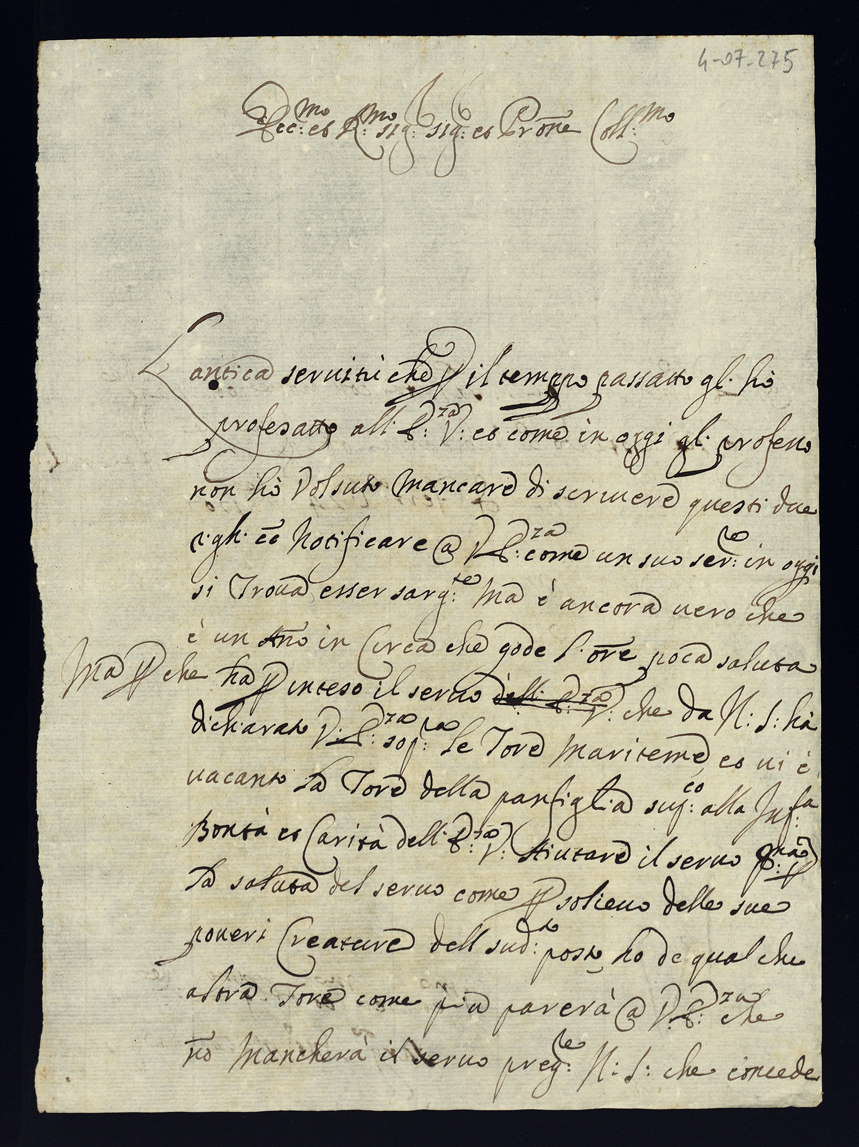 4-07-275
Ecc:mo et R:mo Sig: Sig: et Prõne Coll:mo
Lantica seruitù che p il temppo passatto gl: hò
profesatto all: E:za V: et come in oggi gl: profeso
non hò Volsuto Mancare di scriuere questi due
righ: et Notificare @ V: E:za come un suo ser:re in oggi
si Troua esser sarg:te Ma è ancora uero che
è un Ano in Circa che gode l'ore poca saluta
Ma p che ha p inteso il seruo dell: E:za V: che da N: S: hà
dichiarato V: E:za sop:a le Tore Mariteme et ui è
uacante la Tore della panfiglia sup:co alla Inf:a
Bontà et Carità dell: E:za V: Aiutare il seruo
la saluta del seruo come p solieuo delle sue
poueri Creature dell sud:to posto ho de qual che
altra Tore come più parerà @ V: E:za che
nõ Mancherà il seruo preg:re N: S: che concede